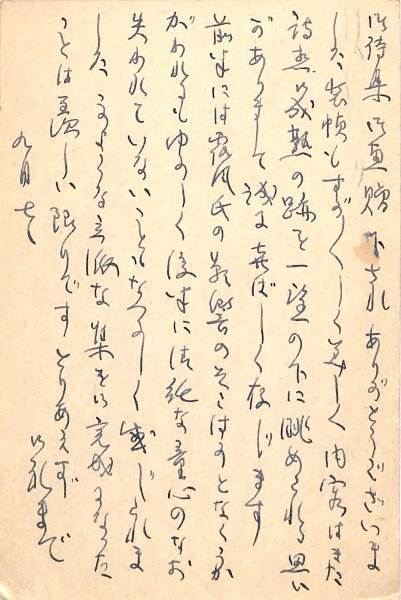 御詩集御恵贈下されありがとうございま
した 装幀もすがすがしく美しく 内容はまた
詩想御成熟の跡を一望の下に眺められる思い
がありまして誠に喜ばしく存じます
前半には露風氏の影響のそこはかとなくう
かがわれるもゆかしく後半に清純な童心のなお
失われていないこともなつかしく感じられま
した このような立派な集を御完成になった
ことは羨しい限りです とりあえず 御礼まで
九月七